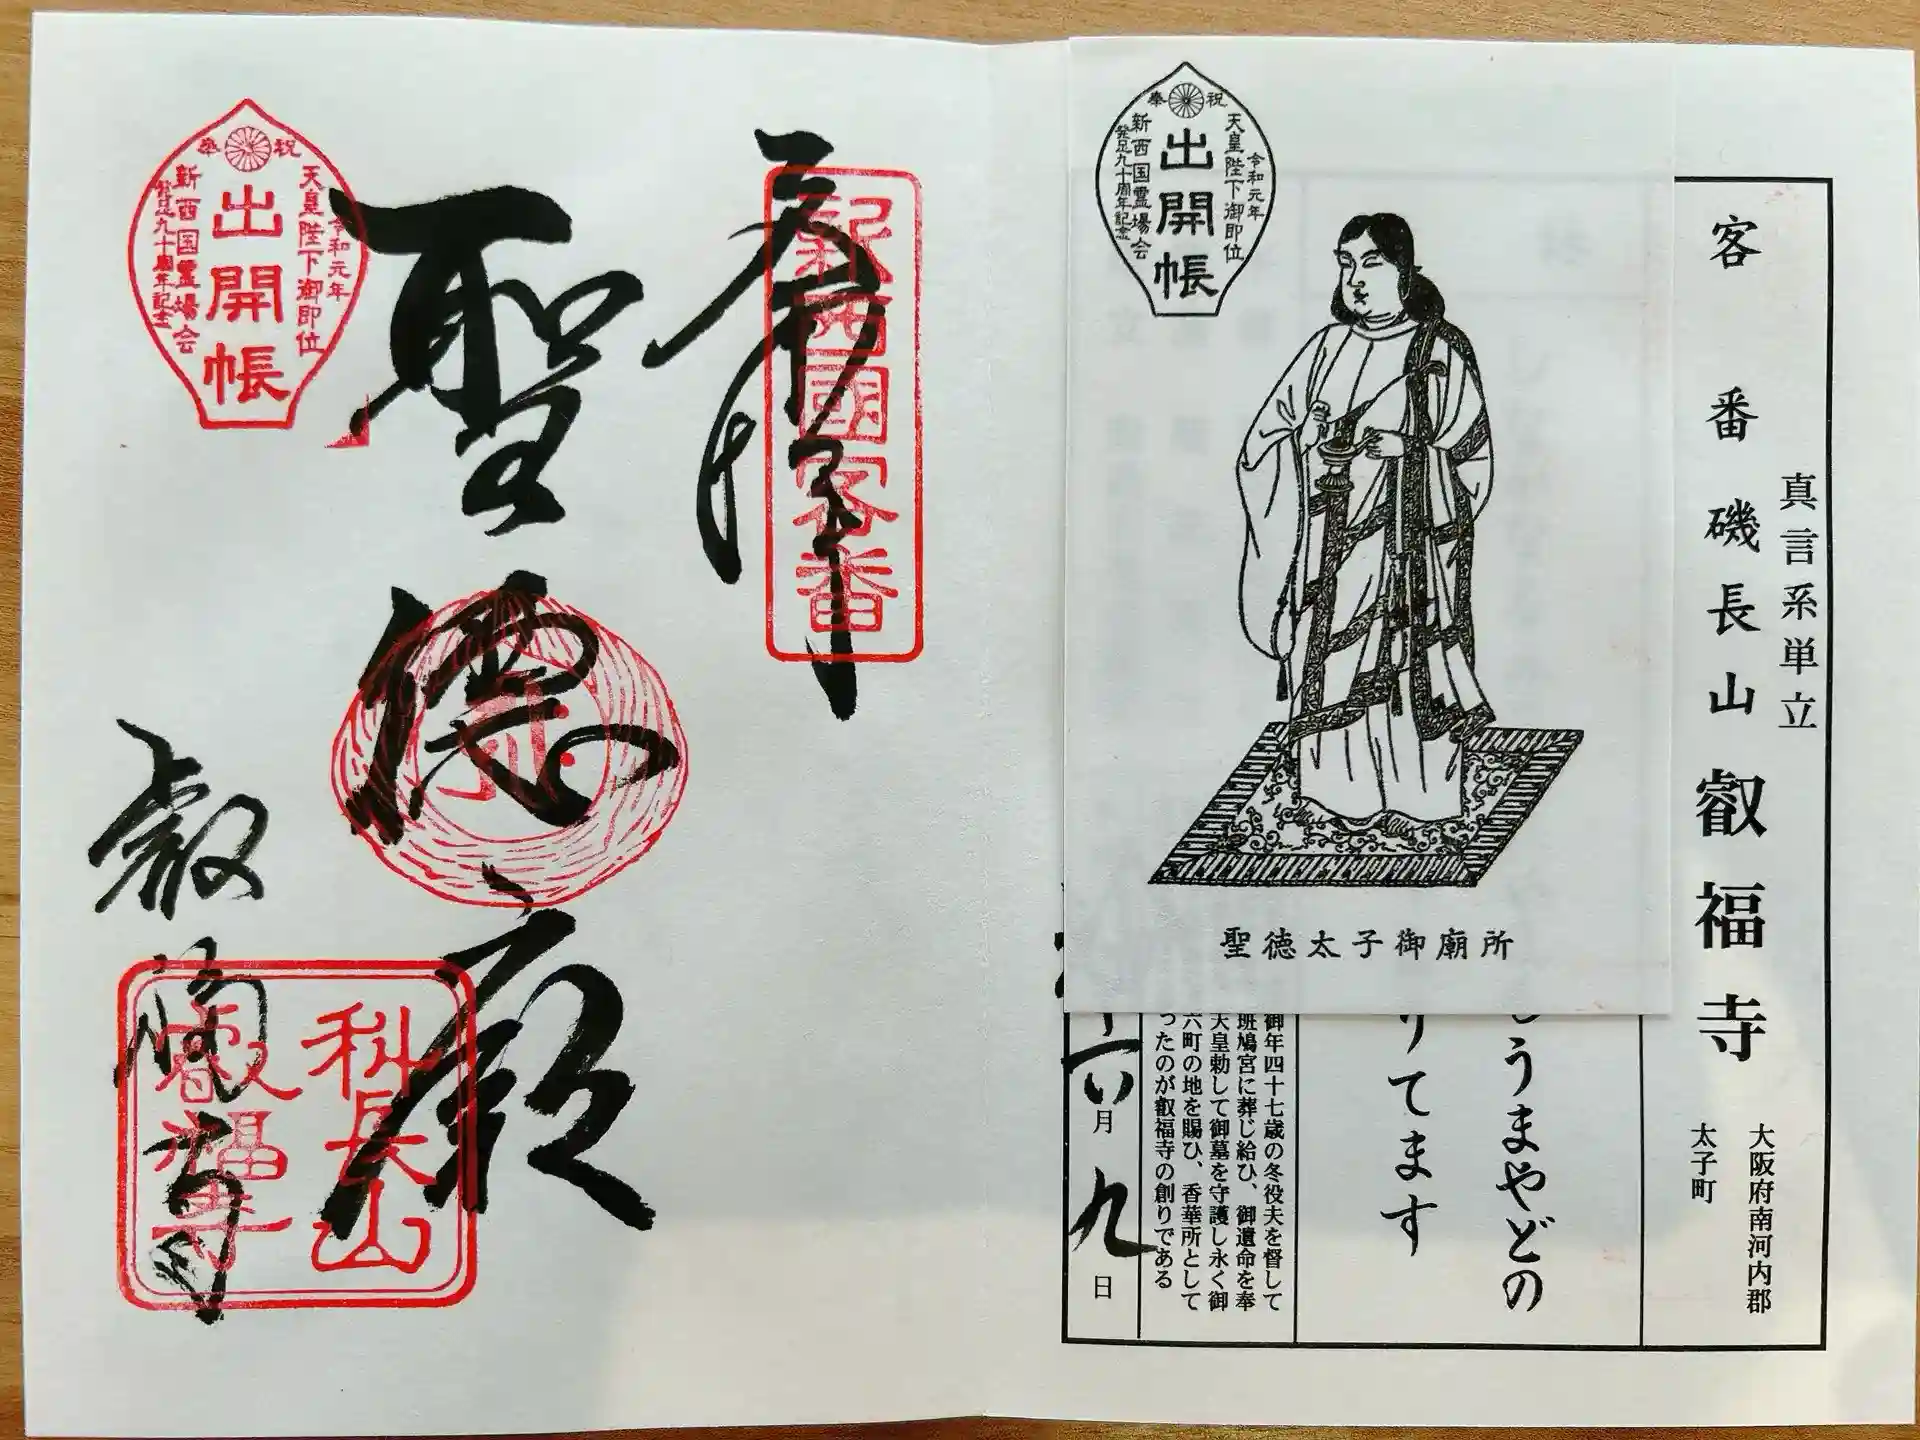 真言系単立
客番 磯長山 叡福寺
大阪府南河内郡
太子町
うまやどの
りてます
御年四十七歳の冬役夫を督して
斑鳩宮に葬じ給ひ、御遺命を奉
天皇勅して御墓を守護し永く御
六町の地を賜ひ、香華所として
ったのが叡福寺の創りである
六月九日
奉祝
令和元年
天皇陛下御即位
出開帳
新西国霊場会
発足九十周年記念
聖徳太子御廟所
奉拝
新西國客番
聖徳廟
叡福寺
科長山
叡福寺
奉祝
令和元年
天皇陛下御即位
出開帳
新西国霊場会
発足九十周年記念